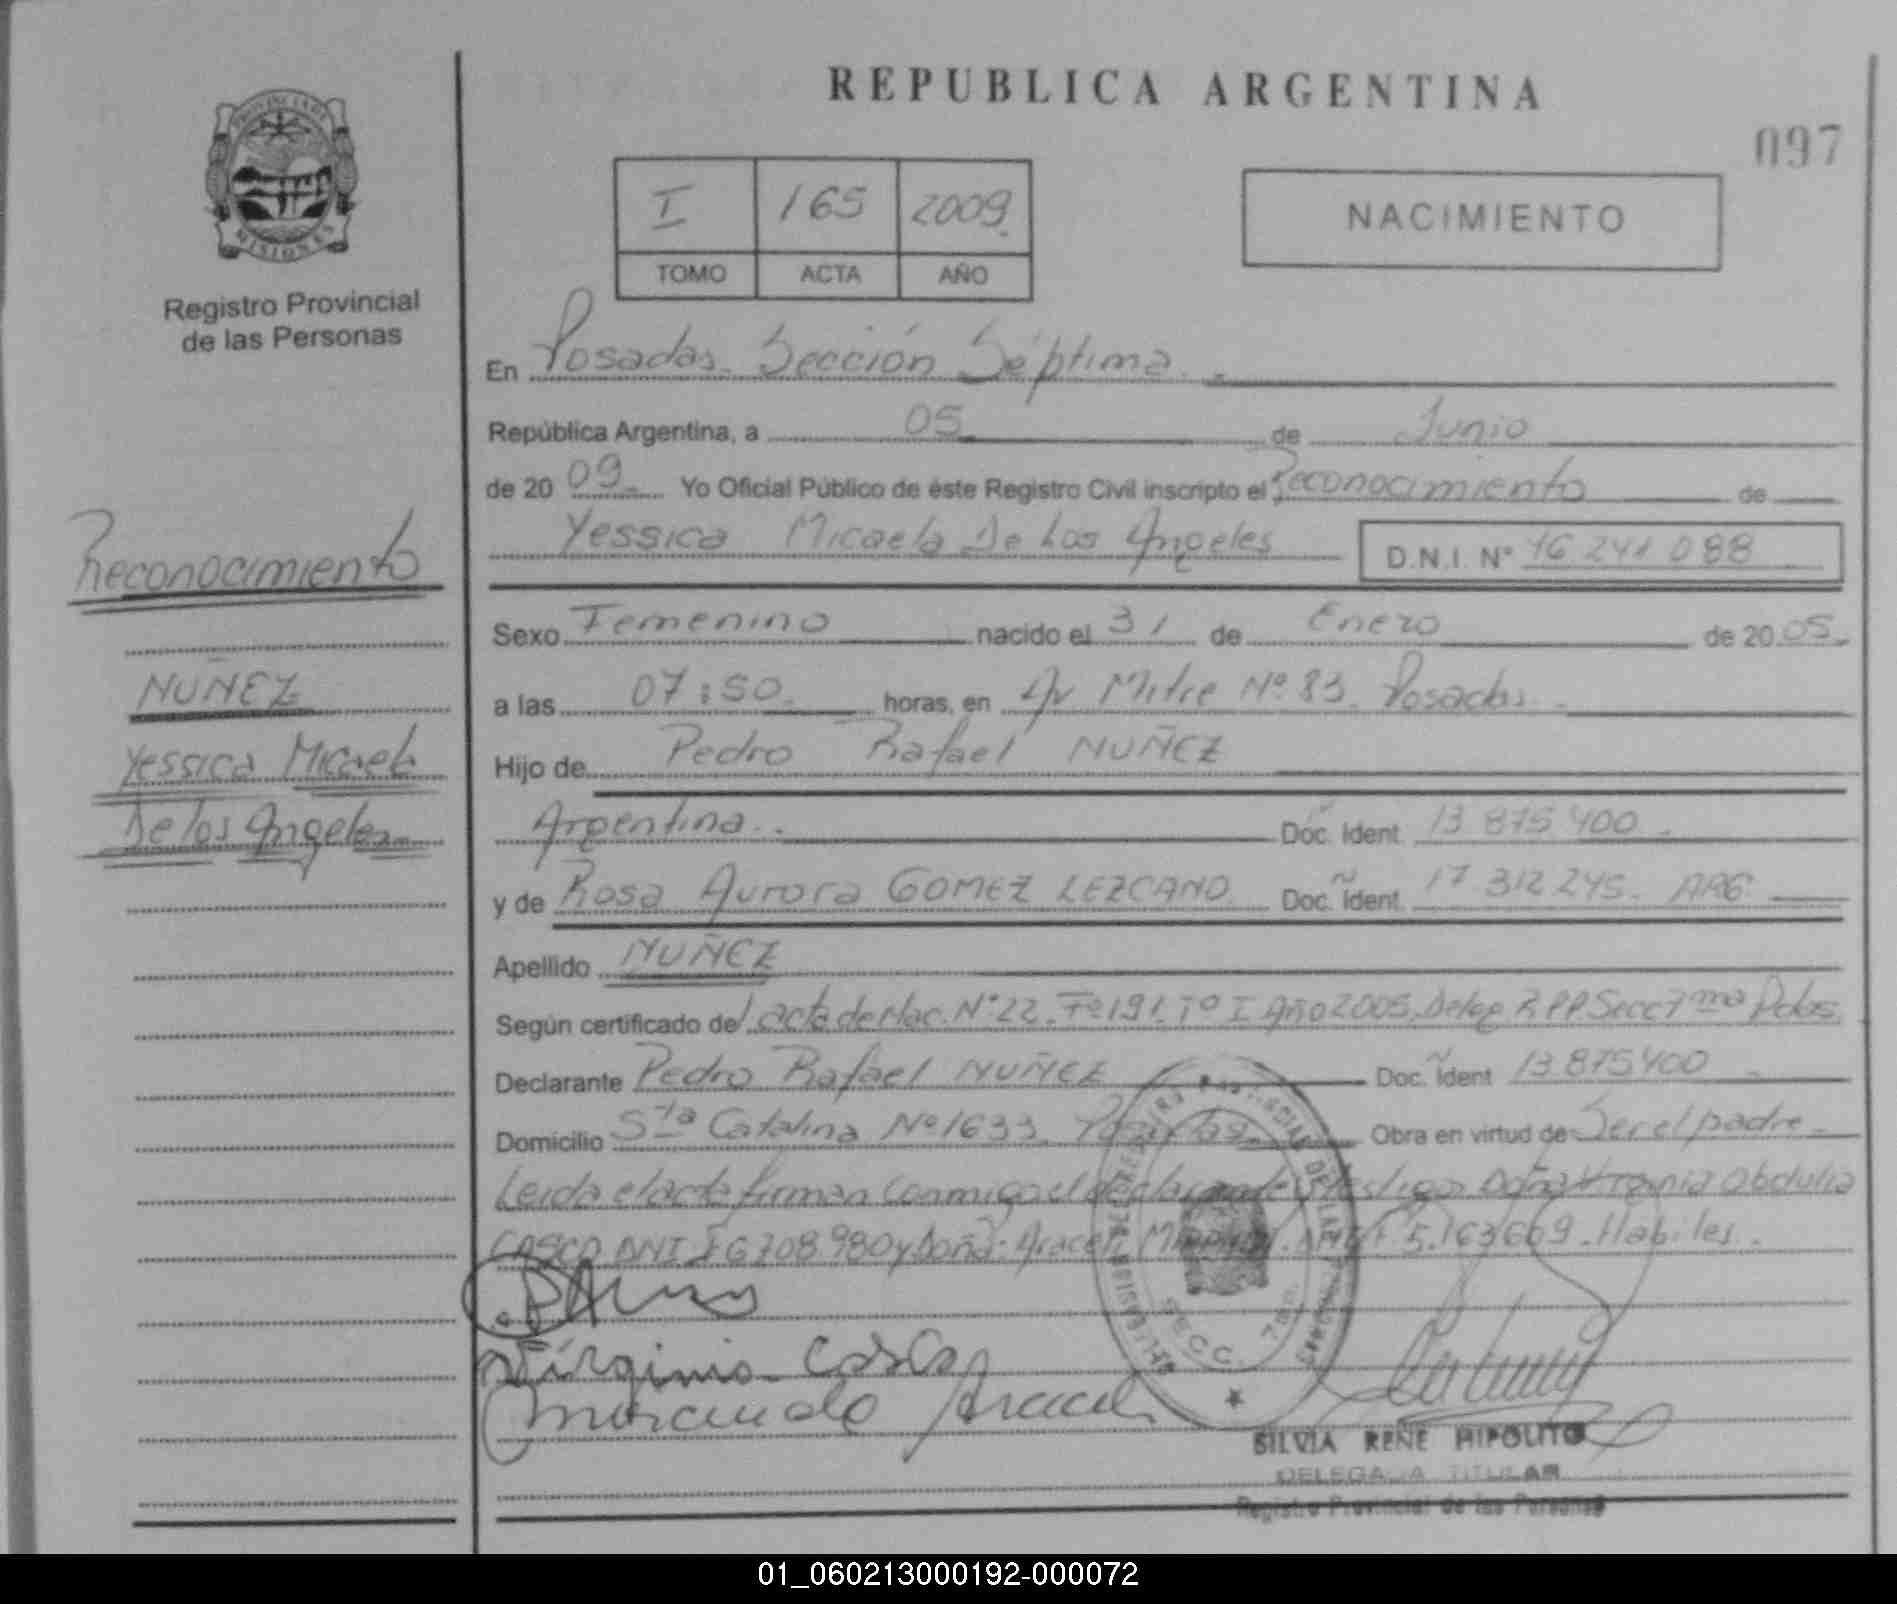 REPUBLICA ARGENTINA
097
PROVINCIA DE
MISIONES
Registro Provincial
de las Personas
I 165 2009
TOMO ACTA AÑO
NACIMIENTO
En Posadas. Sección Séptima.
República Argentina, a 05 de Junio
de 20 09. Yo Oficial Público de éste Registro Civil inscripto el Reconocimiento de
Yessica Micaela De Los Angeles D.N.I. N° 46.241.088
Reconocimiento
NUÑEZ
Yessica Micaela
De los Angeles
Sexo Femenino nacido el 31 de Enero de 20 05.
a las 07:50. horas, en Av Mitre N° 83. Posadas.
Hijo de Pedro Rafael NUÑEZ
Argentina. Doc. Ident. 13 875 400.
y de Rosa Aurora GOMEZ LEZCANO. Doc. Ident. 17 312 245. ARG
Apellido NUÑEZ
Según certificado de acta de Nac. N°22. F°191. T° I Año 2005. Deleg R.P.P Secc 7ma Pdas.
Declarante Pedro Rafael NUÑEZ Doc. Ident 13.875400
Domicilio Sta Catalina N°1633. Posadas. Obra en virtud de Ser el padre.
Leida el acta firman conmigo el declarante testigos Doña Obdulia
CASCO DNI F6708.980 y Doña: Araceli 5.163669. Habiles.
Virginia Casco
Araceli
SECC. 7ma.
SILVIA RENE HIPOLITO
DELEGADA TITULAR
Registro Provincial de las Personas
01_060213000192-000072